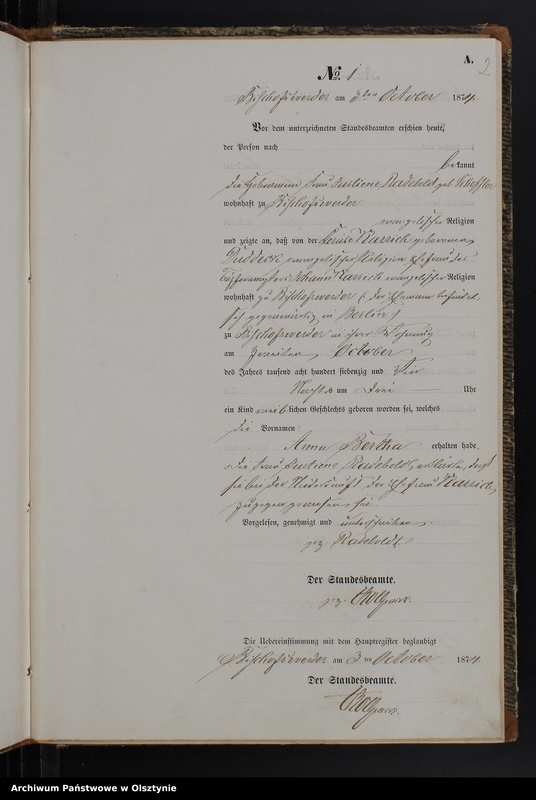 A.
2
No. 1
Bischofswerder am 3ten October 1874.
Vor dem unterzeichneten Standesbeamten erschien heute,
der Person nach
bekannt
die Hebeamme Frau Justiene Radeboldt geb.
wohnhaft zu Bischofswerder
evangelischer Religion
und zeigte an, daß von der Karrick geborenen
Duddeck, evangelischer Religion Ehefrau des
Johann Karrick evangelischer Religion
wohnhaft zu Bischofswerder (der Ehemann befindet
sich gegenwärtig in Berlin)
zu Bischofswerder in ihrer Wohnung
am zweiten October
des Jahres tausend acht hundert siebenzig und vier
Nachts um drei Uhr
ein Kind weiblichen Geschlechts geboren worden sei, welches
die Vornamen
Anna Bertha erhalten habe.
die Frau Justiene Radeboldt erklärte, daß
sie bei der Niederkunft der Ehefrau Karrick,
zugegen gewesen sei.
Vorgelesen, genehmigt und unterschrieben.
gz. Radeboldt
Der Standesbeamte.
gz.
Die Uebereinstimmung mit dem Hauptregister beglaubigt
Bischofswerder am 3ten October 1874.
Der Standesbeamte.
Archiwum Państwowe w Olsztynie